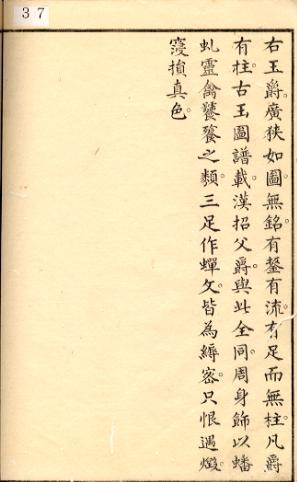 37
右玉爵。廣狹如圖。無銘。有鋬有流。有足而無柱。凡爵
有柱。古玉圖譜。載漢招父爵。與此全同。周身飾以蟠
虬靈禽饕餮之類。三足作蟬文。皆為縟密。只恨遇燬。
寖損真色。